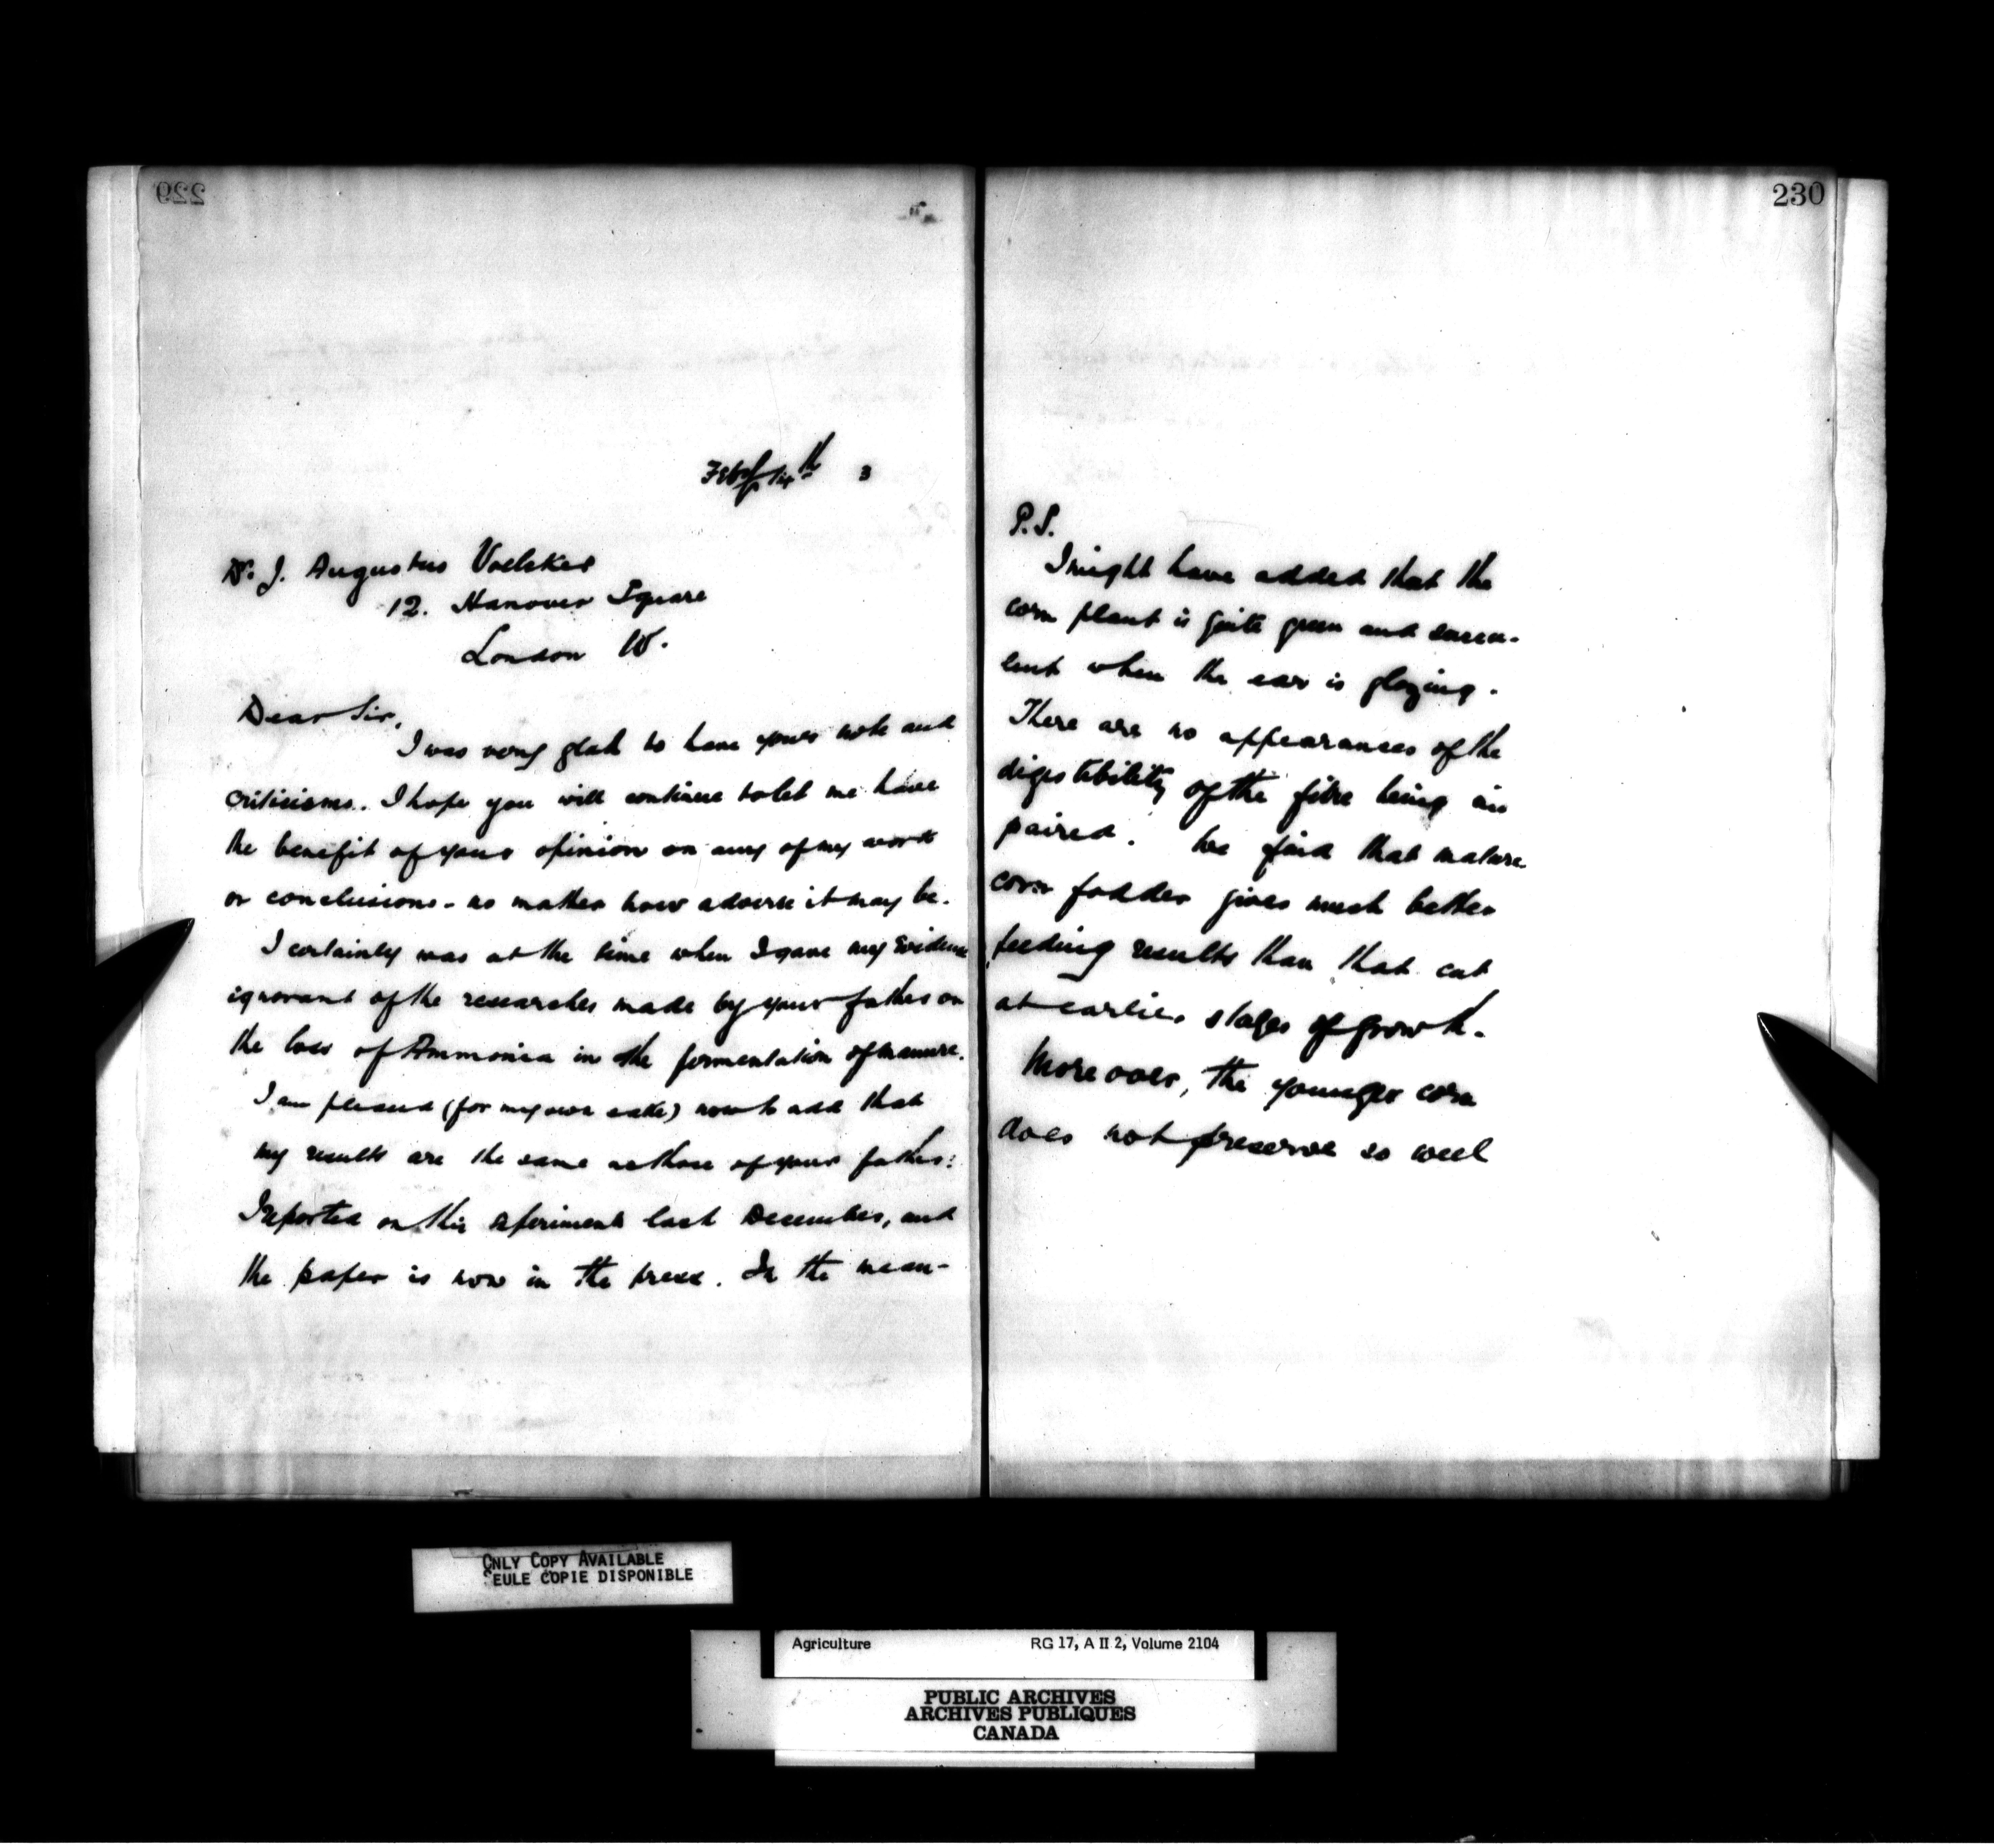 229
Feby sixth 3
Dr. J. Augustus Voelcker
12. Hanover Square
London W.
Dear Sir,
I was very glad to have your note and
criticisms. I hope you will continue to let me have
the benefit of your opinion on any of my work
or conclusions - no matter how adverse it may be.
I certainly was at the time when I gave my Evidence
ignorant of the researches made by your father on
the loss of Ammonia in the fermentation of manure.
I am pleased (for my own sake) now to add that
my results are the same as those of your father:
I reported on this experiment last December, and
the paper is now in the press. In the mean-
230
P.S.
I might have added that the
corn plant is quite green and succu-
lent when the ear is glazing.
There are no appearances of the
digestibility of the fibre being im
paired. We find that mature
corn fodder gives much better
feeding results than that cut
at earlier stages of growth.
Moreover, the younger corn
does not preserve so well
ONLY COPY AVAILABLE
SEULE COPIE DISPONIBLE
Agriculture RG 17, A II 2, Volume 2104
PUBLIC ARCHIVES
ARCHIVES PUBLIQUES
CANADA